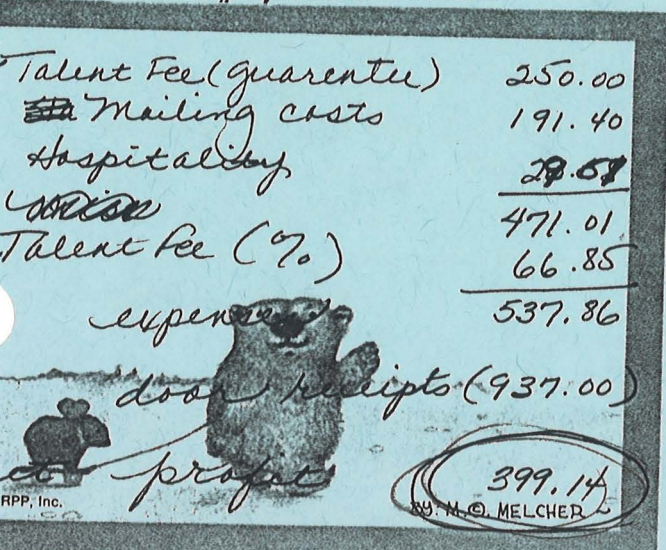 Talent Fee (guarentee) 250.00
Mailing costs 191.40
Hospitality
471.01
Talent Fee (%) 66.85
expens 537.86
door receipts (937.00)
et profit 399.14
RPP, Inc. BY: M.O. MELCHER